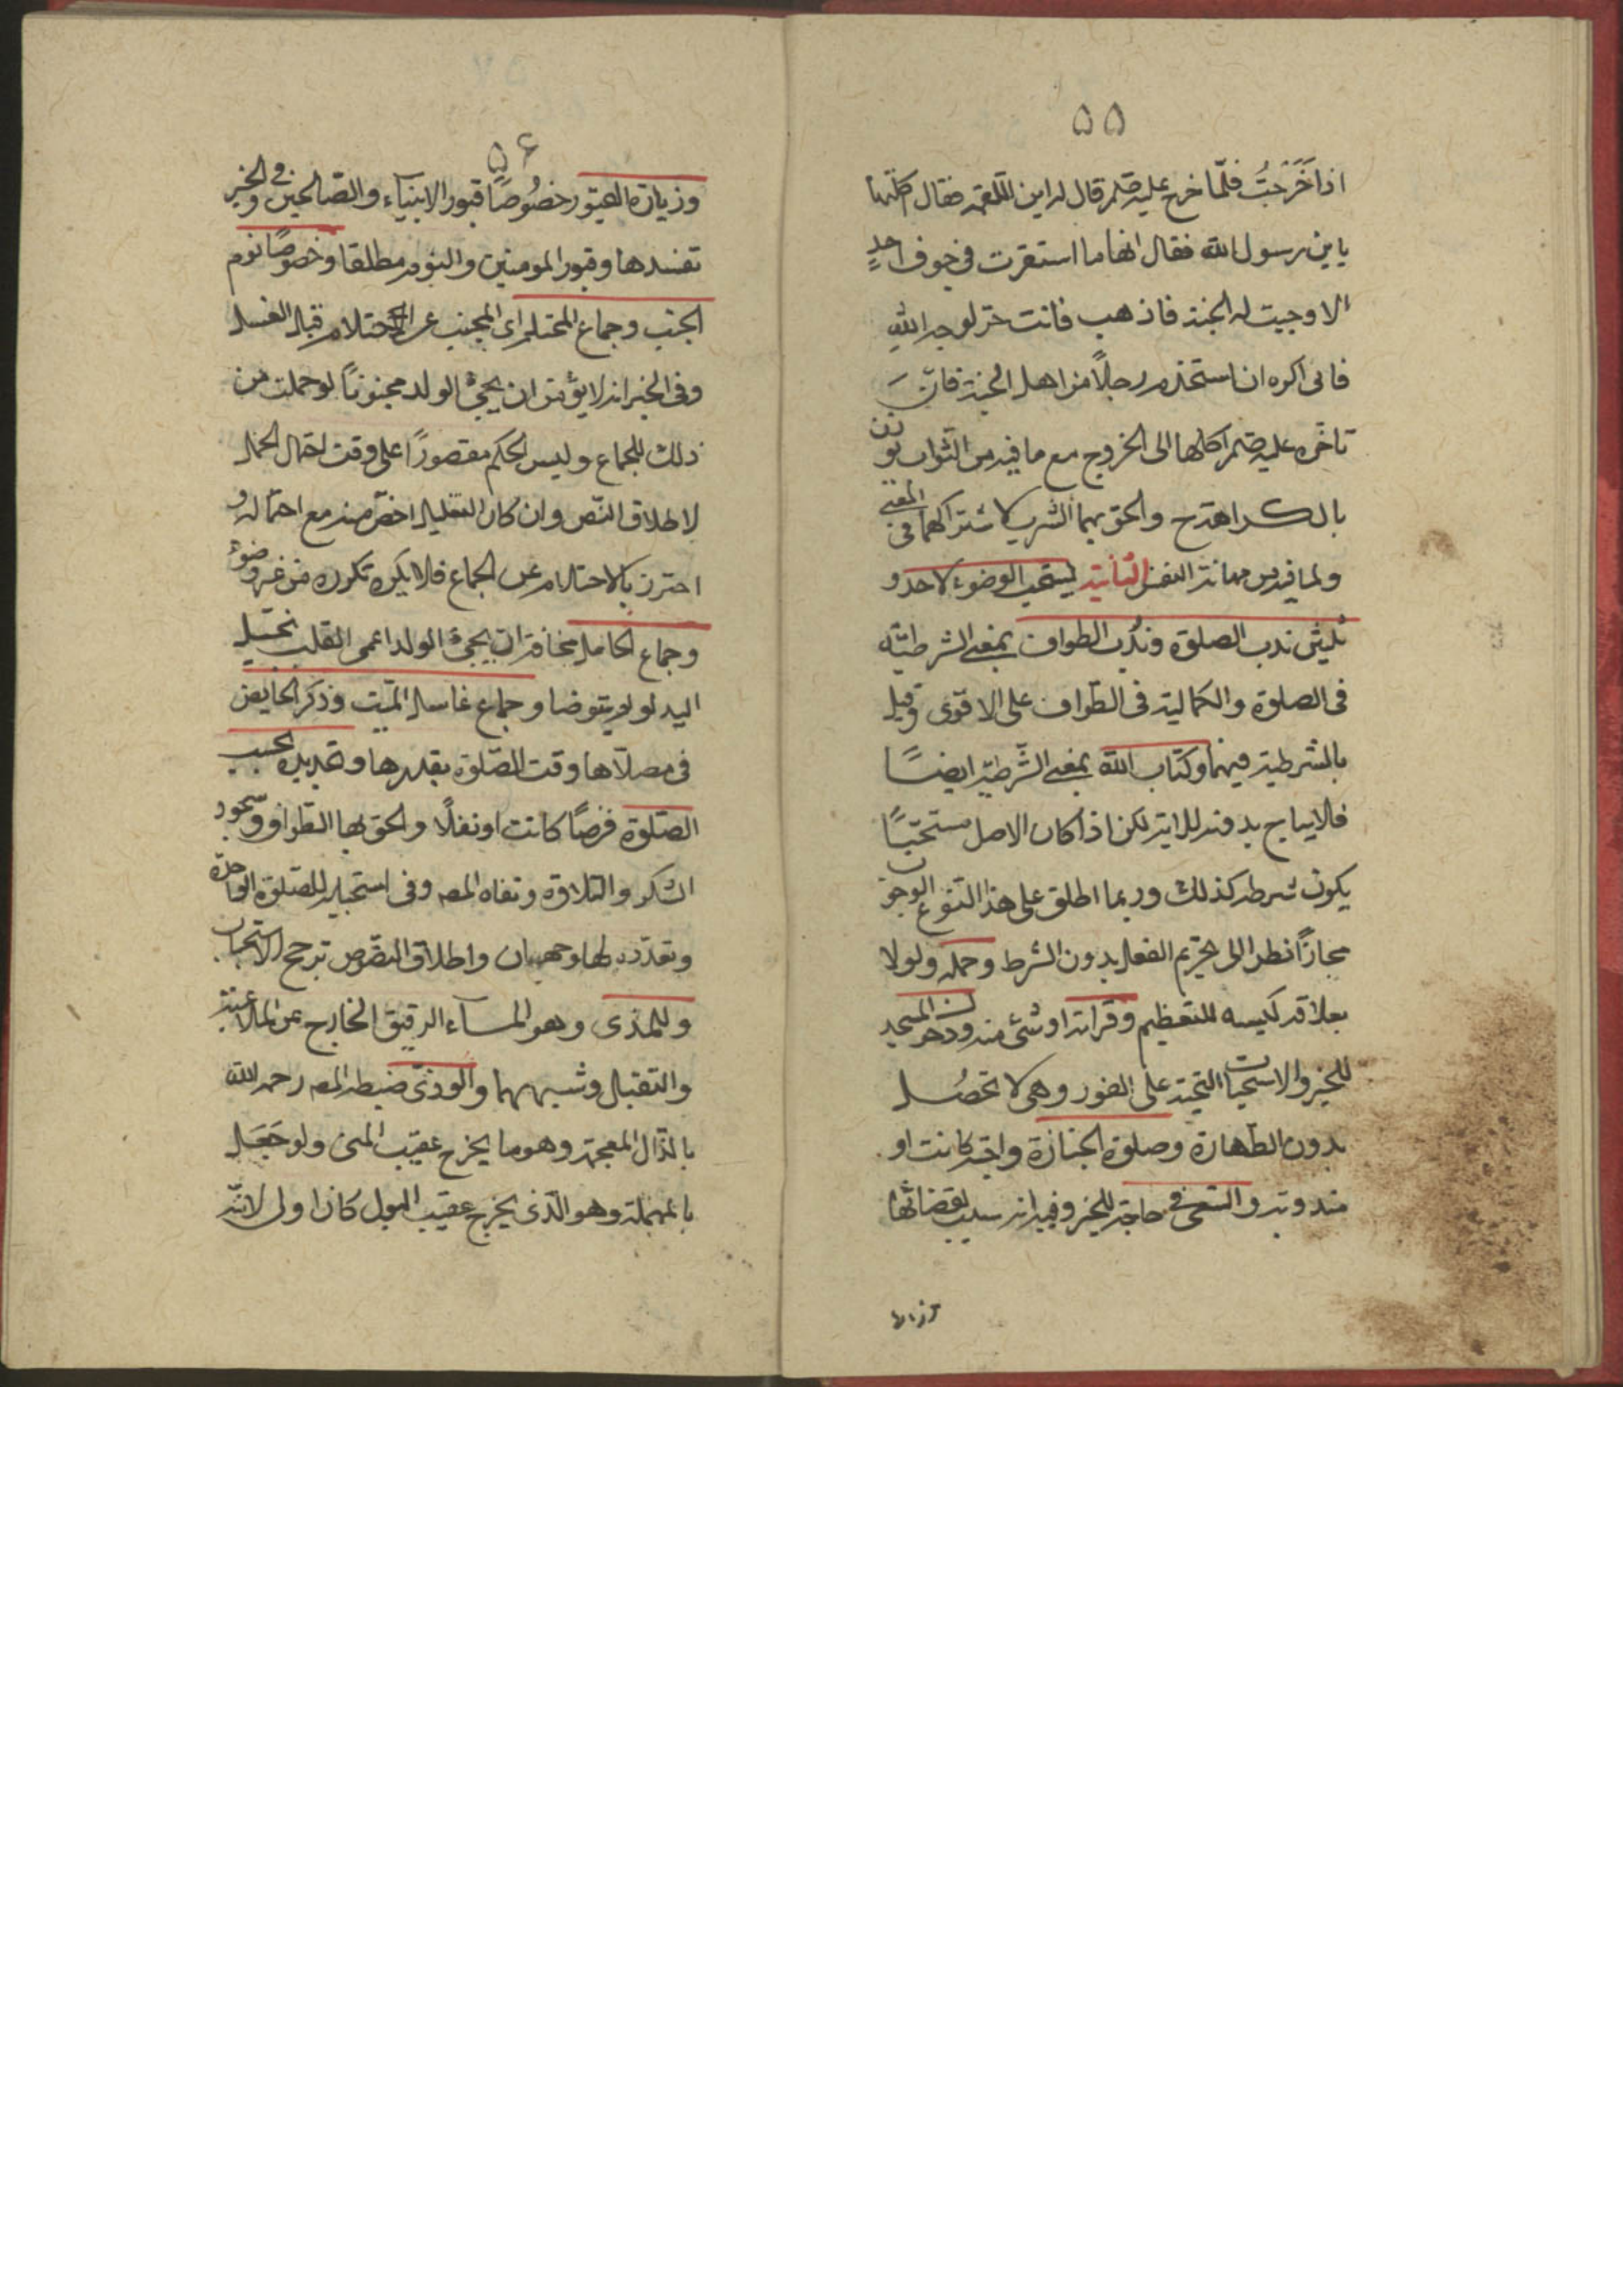 ۵۵
اذا خَرَجتُ فلمّا خرج عليه صلم قال له اين اللقمة فقال اكلتها
يابن رسول الله فقال انها ما استقرت فى جوف احدٍ
الا وجبت له الجنة فاذهب فانت حر لوجه الله
فانى اكره ان استخدم رجلاً من اهل الجنة فان
تاخره عليه صلم اكلها الى الخروج مع ما فيه من الثواب يوذن
بالكراهة ح والحق بهما الشرب لاشتراكهما فى المعنى
ولما فيه من مهانة النفس الثانية يستحب الوضوء لاحد و
ثلثين ندب الصلوة وندب الطواف بمعنى الشرطيّة
فى الصلوة والكمالية فى الطواف على الاقوى وقيل
بالشرطية فيهما وكتاب الله بمعنى الشرطيّه ايضًا
فلا يباح بدونه للاية لكن اذا كان الاصل مستحبّا
يكون شرطه كذلك وربما اطلق على هذا النوع الوجوب
مجازاً نظرا الى تحريم الفعل بدون الشرط وحمله ولو لا
بعلاقة ككيسه للتعظيم وقرائة او شئ منه ودخول المسجد
للخبر والاستحباب التحية على الفور وهى لا تحصُل
بدون الطهارة وصلوة الجنازة واجبة كانت او
مندوبة والسعى فى حاجة للخبر وفيه انه سبب لقضائها
وزيارة
۵۶
وزيارة القبور خصُوصًا قبور الانبياء والصّالحين وفى الخبر
تقيدها وقبور المومنين والنوم مطلقا وخصوصًا نوم
الجنب وجماع المحتلم اى المجنب عن الاحتلام قبل الغسل
وفى الخبر انه لا يؤمن ان يجئ الولد مجنونًا لو حملت من
ذلك الجماع وليس الحكم مقصورًا على وقت احتمال الحمل
لاطلاق النّص وان كان التعليل اخصّ منه مع احتماله و
احترز بالاحتلام عن الجماع فلا يكره تكرره من غير وضوء
وجماع الحامل مخافة ان يجئ الولد اعمى القلب بخيل
اليد لو لم يتوضا وجماع غاسل الميّت وذكر الحايض
فى مصلاها وقت الصّلوة بقدرها وتجديده بحسب
الصّلوة فرضًا كانت او نفلًا والحق بها الطواف وسجود
الشكر والتلاوة ونفاه المصه وفى استحبابه للصّلوة الواحدة
وتعدّده لها وجهان واطلاق النصوص ترجح الاستحباب
وللمذى وهو المآء الرقيق الخارج عن الملاعبة
والتقبيل وشبههما والوذىّ ضبطه المصه رحمه الله
بالذال المعجمة وهو ما يخرج عقيب المنى ولو جَعَل
بالمهملة وهو الّذى يخرج عقيب البول كان اولى لانّه